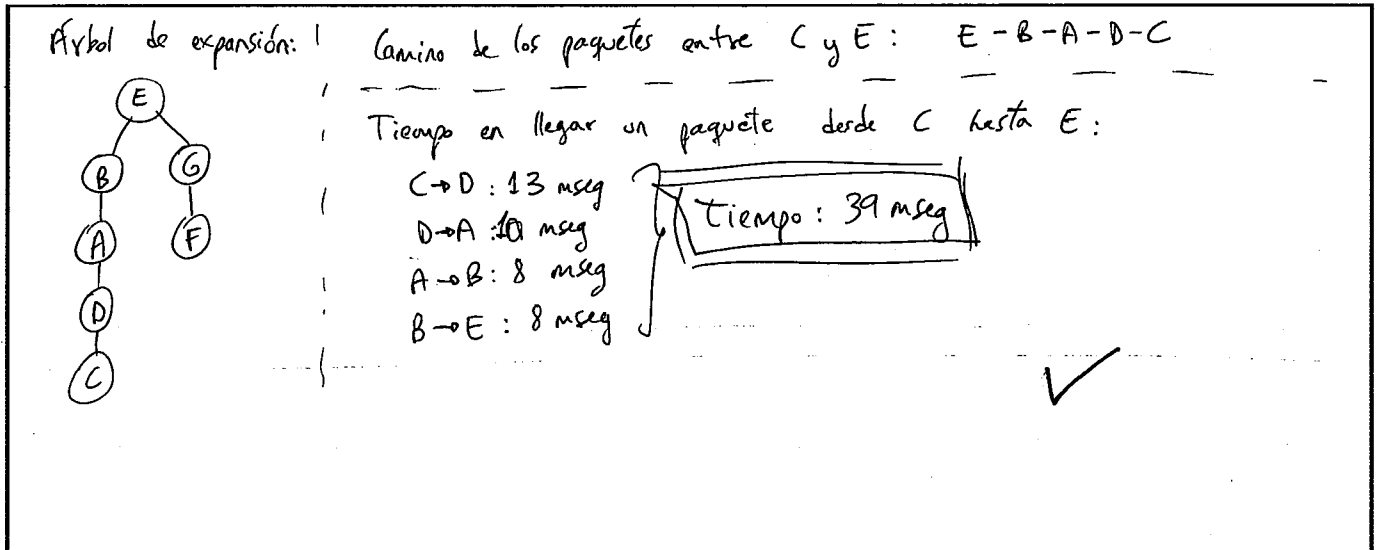 Árbol de expansión:
E
B G
A F
D
C
Camino de los paquetes entre C y E : E - B - A - D - C
Tiempo en llegar un paquete desde C hasta E :
C→D : 13 mseg
D→A : 10 mseg
A→B : 8 mseg
B→E : 8 mseg
tiempo : 39 mseg